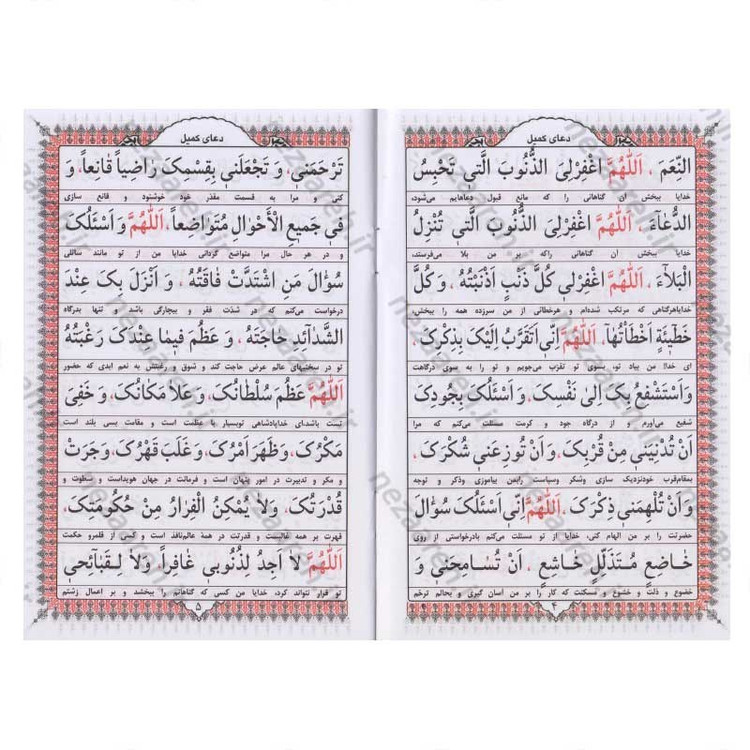 دعای کمیل
النِّعَمَ ، اَللّهُمَّ اغْفِرْلِیَ الذُّنُوبَ الَّتی تَحْبِسُ
خدایا ببخش آن گناهانی را که مانع قبول دعاهایم می‌شود،
الدُّعاءَ ، اَللّهُمَّ اغْفِرْلِیَ الذُّنُوبَ الَّتی تُنْزِلُ
خدایا ببخش آن گناهانی راکه بر من بلا می‌فرستد،
الْبَلاءَ، اَللّهُمَّ اغْفِرْلی کُلَّ ذَنْبٍ اَذْنَبْتُهُ ، وَ کُلَّ
خدایاهرگناهی که مرتکب شده‌ام و هرخطائی از من سرزده همه را ببخش،
خَطیئَةٍ اَخْطَأْتُها، اَللّهُمَّ اِنّی اَتَقَرَّبُ اِلَیْکَ بِذِکْرِکَ ،
ای خدا! من بیاد تو، بسوی تو تقرّب می‌جویم و تو را به سوی درگاهت
وَ اَسْتَشْفِعُ بِکَ اِلی نَفْسِکَ، وَ اَسْئَلُکَ بِجُودِکَ
شفیع می‌آورم و از درگاه جود و کرمت مسئلت می‌کنم که مرا
اَنْ تُدْنِیَنی مِنْ قُرْبِکَ، وَ اَنْ تُوزِعَنی شُکْرَکَ ،
بمقام‌قرب خودنزدیک سازی وشکر وسپاست رابمن بیاموزی وذکر و توجه
وَ اَنْ تُلْهِمَنی ذِکْرَکَ ،اَللّهُمَّ اِنّی اَسْئَلُکَ سُؤالَ
حضرتت را بر من الهام کنی، خدایا از تو مسئلت می‌کنم بادرخواستی از روی
خاضِعٍ مُتَذَلِّلٍ خاشِعٍ ، اَنْ تُسامِحَنی وَ
خضوع و ذلّت و خشوع و مسکنت که کار را بر من آسان گیری و بحالم ترحّم
۴
دعای کمیل
تَرْحَمَنی، وَ تَجْعَلَنی بِقِسْمِکَ راضِیاً قانِعاً، وَ
کنی و مرا به قسمت مقدر خود خوشنود و قانع سازی
فی جَمیعِ الْأَحْوالِ مُتَواضِعاً، اَللّهُمَّ وَ اَسْئَلُکَ
و در هر حال مرا متواضع گردانی خدایا من از تو مانند سائلی
سُؤالَ مَنِ اشْتَدَّتْ فاقَتُهُ ، وَ اَنْزَلَ بِکَ عِنْدَ
درخواست می‌کنم که در شدّت فقر و بیچارگی باشد و تنها بدرگاه
الشَّدائِدِ حاجَتَهُ ، وَ عَظُمَ فیما عِنْدَکَ رَغْبَتُهُ
تو در سختیهای عالم عرض حاجت کند و شوق و رغبتش به نعم ابدی که حضور
اَللّهُمَّ عَظُمَ سُلْطانُکَ، وَ عَلا مَکانُکَ ، وَ خَفِیَ
تست باشد،ای خدایاپادشاهی توبسیار با عظمت است و مقامت بسی بلند است
مَکْرُکَ، وَ ظَهَرَ اَمْرُکَ، وَ غَلَبَ قَهْرُکَ، وَ جَرَتْ
و مکر و تدبیرت در امور پنهان است و فرمانت در جهان هویداست و سطوت و
قُدْرَتُکَ، وَ لا یُمْکِنُ الْفِرارُ مِنْ حُکُومَتِکَ،
قهرت بر همه غالبست و قدرتت در همهٔ عالم‌نافذ است و کسی از قلمرو حکمت
اَللّهُمَّ لا اَجِدُ لِذُنُوبی غافِراً، وَ لا لِقَبائِحی
تو فرار نتواند کرد، خدایا من کسی که گناهانم را ببخشد و بر اعمال زشتم
۵
nezaareh.ir